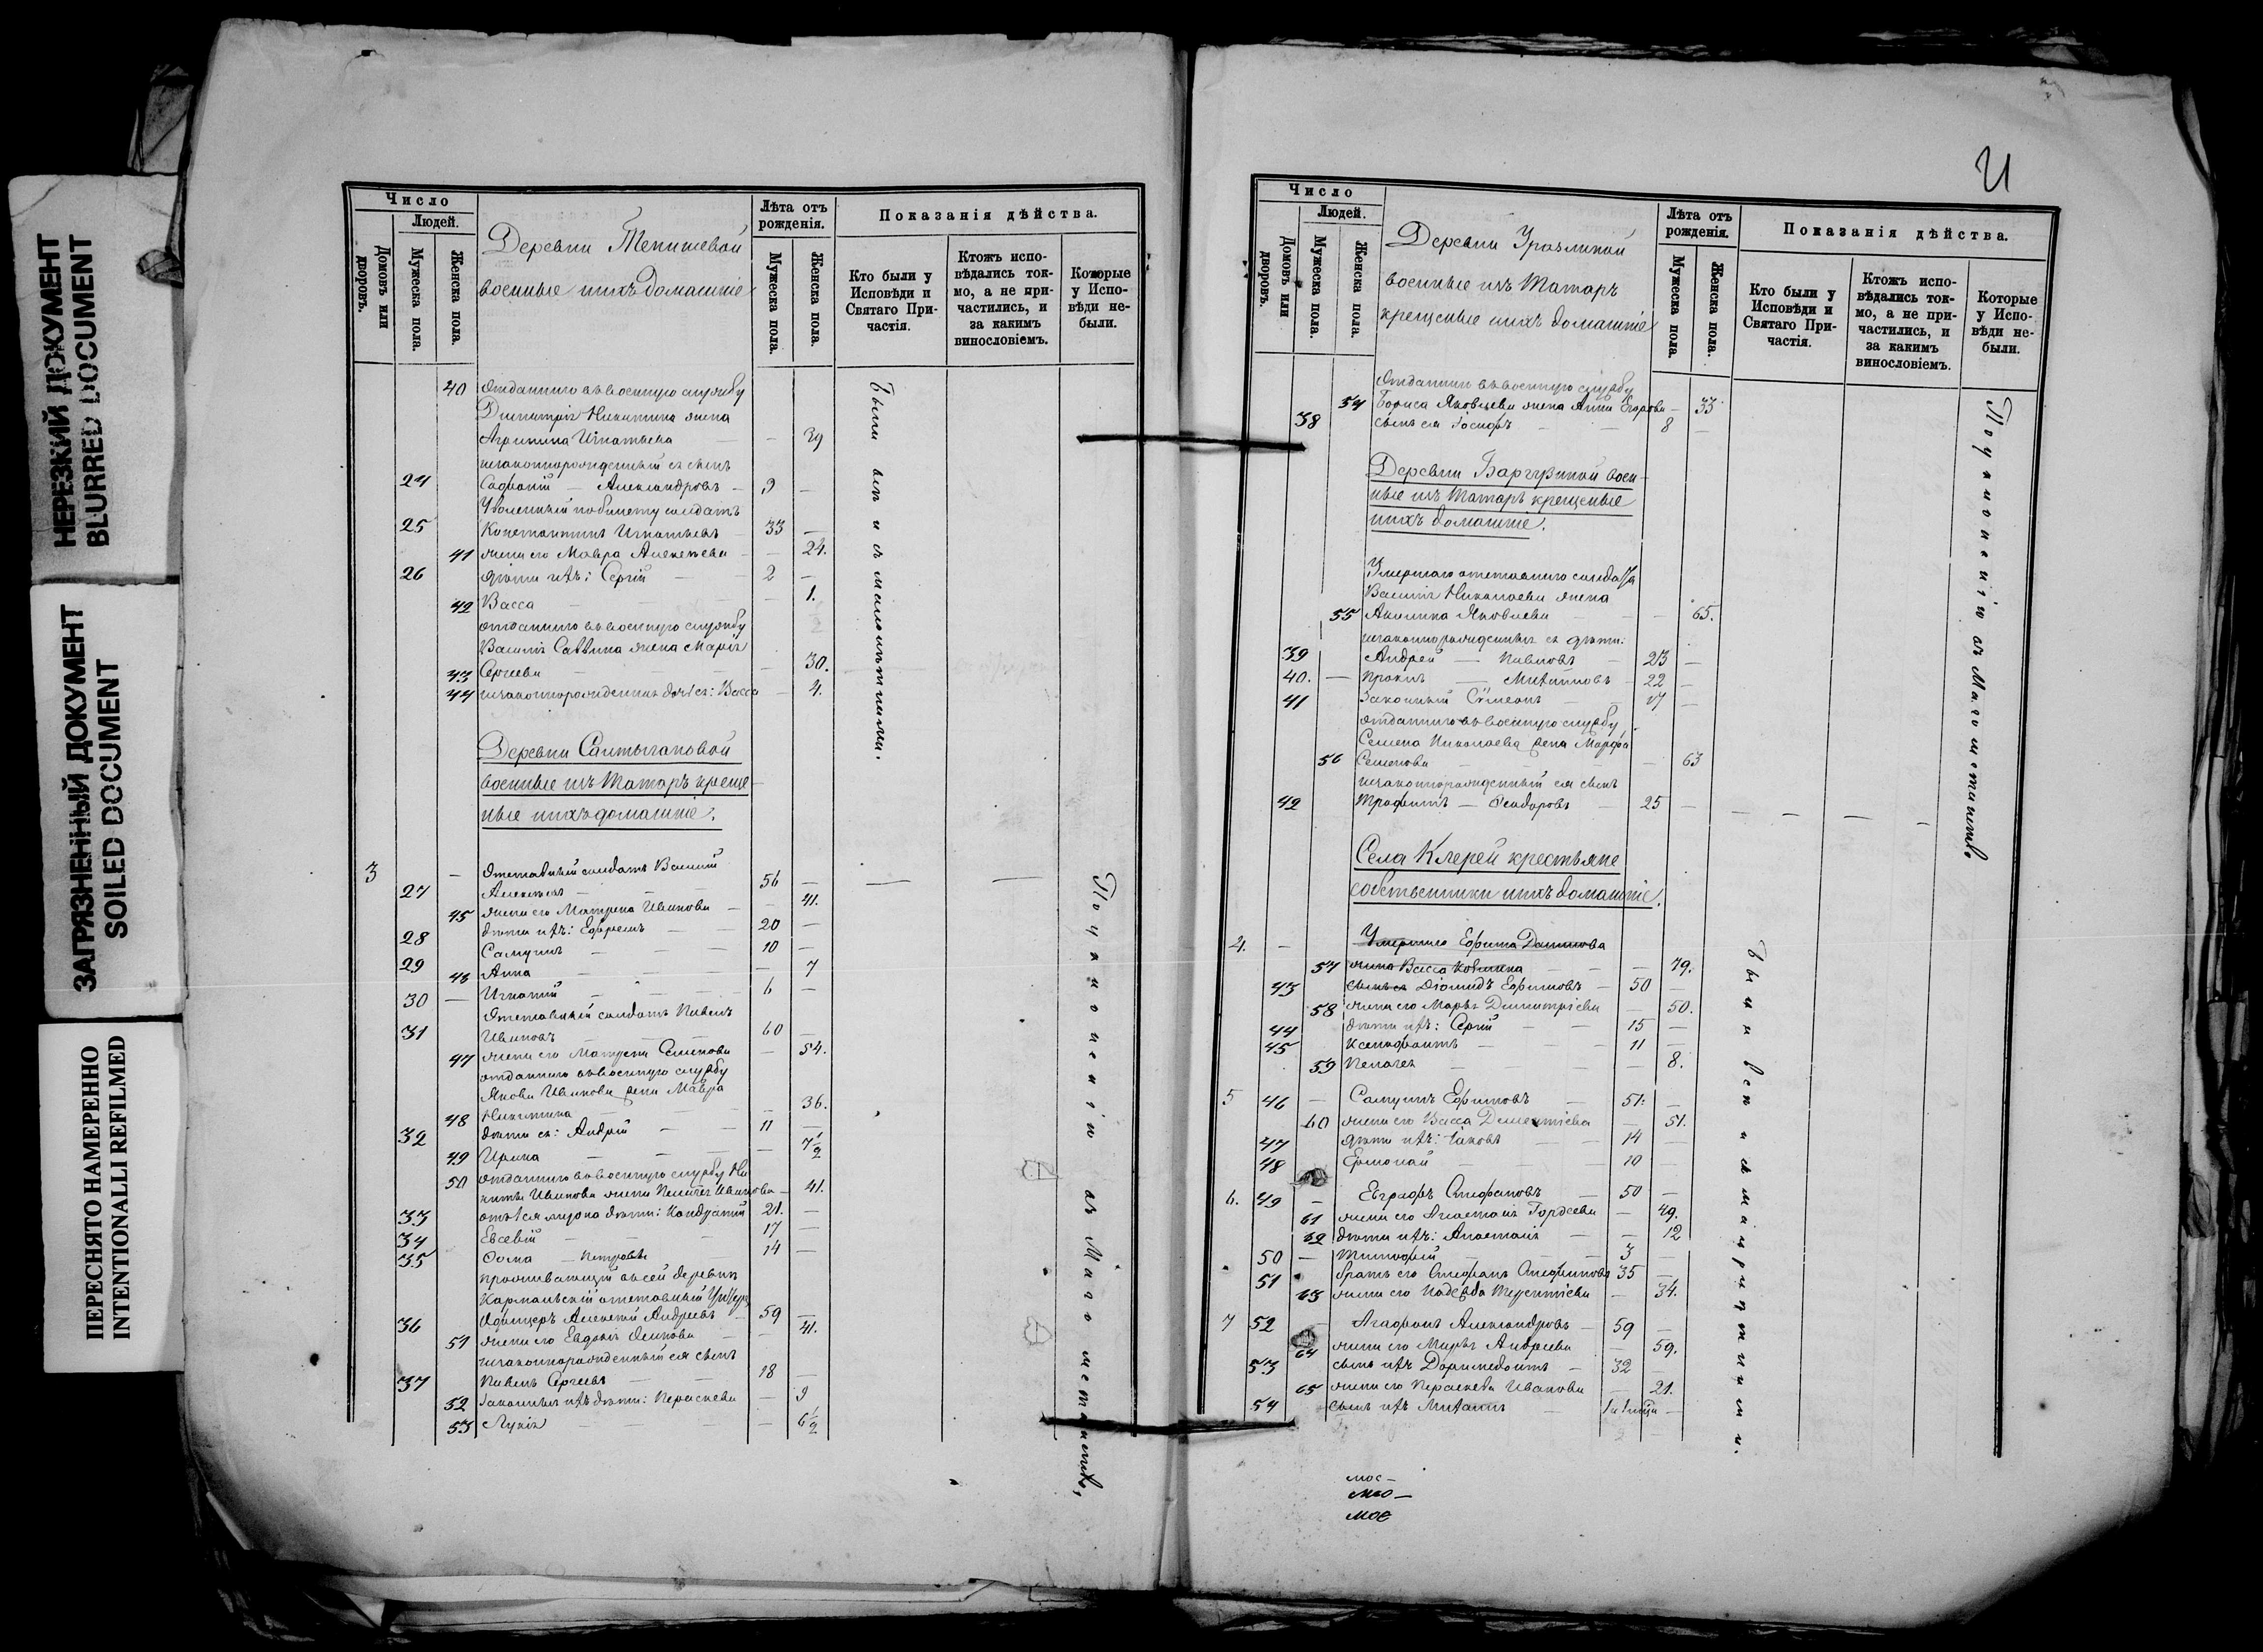 НЕРЕЗКИЙ ДОКУМЕНТ
BLURRED DOCUMENT
ЗАГРЯЗНЕННЫЙ ДОКУМЕНТ
SOILED DOCUMENT
ПЕРЕСНЯТО НАМЕРЕННО
INTENTIONALLY REFILMED
Число
Людей.
Домовъ или дворовъ.
Мужеска пола.
Женска пола.
Деревни Тенишевой
военные и ихъ домашніе
Лѣта отъ рожденія.
Мужеска пола.
Женска пола.
Показанія дѣйства.
Кто были у Исповѣди и Святаго Причастія.
Ктожъ исповѣдались токмо, а не причастились, и за какимъ винословіемъ.
Которые у Исповѣди небыли.
40 отданнаго въ военную службу
Димитрія Никитина жена
Агрипина Игнатьева — — 39
незаконнорожденный ея сынъ
24 Софроній — Александровъ — 9 —
Уволенный по билету солдатъ
25 Константинъ Игнатьевъ — 33 —
41 жена его Мавра Алексѣева — — 24.
26 дѣти ихъ: Сергій — 2 —
42 Васса — — 1.
отданнаго въ военную службу
Василія Саввина жена Марія
43 Сергеева — — 30.
44 незаконнорожденная дочь ея: Васса — 4.
Были вси и съ малолѣтними.
Деревни Салтыгановой
военные изъ Татаръ креще-
ные и ихъ домашніе.
3 — Отставный солдатъ Василій
27 Алексѣевъ — 56 —
45 жена его Матрена Иванова — — 41.
28 дѣти ихъ: Ефремъ — 20 —
29 Самуилъ — 10 —
46 Анна — — 7
30 — Игнатій — 6 —
Отставный солдатъ Павелъ
31 Ивановъ 60 —
47 жена его Матрена Семенова — 54.
отданнаго въ военную службу
Якова Иванова жена Мавра
48 Никитина — — 36.
32 дѣти ея: Андрей — 11 —
49 Ирина — — 7½
50 отданнаго въ военную службу Ни-
киты Иванова жена Пелагея Иванова — 41.
33 отъ 1ея мужа дѣти: Кондратій 21. —
34 Евсевій — 17 —
35 Ѳома — Петровы 14 —
проживающій въ сей деревни
Кармальскій отставный Унтеръ
36 Офицеръ Алексѣй Андреевъ — 59 —
51 жена его Евдокія — 41.
незаконнорожденный ея сынъ
37 Павелъ Сергеевъ — 18 —
52 законныя ихъ дѣти: Параскева — 9
53 Лукія — — 6½
По уклоненію въ Магометанство.
И
Число
Людей.
Домовъ или дворовъ.
Мужеска пола.
Женска пола.
Деревни Уразлиной
военные изъ Татаръ
крещеные и ихъ домашніе
Лѣта отъ рожденія.
Мужеска пола.
Женска пола.
Показанія дѣйства.
Кто были у Исповѣди и Святаго Причастія.
Ктожъ исповѣдались токмо, а не причастились, и за какимъ винословіемъ.
Которые у Исповѣди небыли.
Отданнаго въ военную службу
54 Бориса Яковлева жена Анна Егорова — 33
38 сынъ ея Іосифъ — 8 —
Деревни Баргузиной воен-
ные изъ Татаръ крещеные
и ихъ домашніе.
Умершаго отставнаго солдата
Василія Николаева жена
55 Акилина Яковлева — — 65.
незаконнорожденныя ея дѣти:
39 Андрей — Павловъ — 23 —
40. — Проклъ — Михайловъ — 22 —
41 Законный Сѵмеонъ — 17 —
отданнаго въ военную службу
Семена Николаева жена Марфа
56 Семенова — — 63
незаконнорожденный ея сынъ
42 Трофимъ — Ѳеодоровъ — 25 —
По уклоненію въ Магометанство.
Села Клерей крестьяне
собственники и ихъ домашніе.
4. — Умершаго Ефима Данилова
57 жена Васса — — 79.
43 сынъ ея Діомидъ Ефимовъ — 50 —
58 жена его Марья Димитріева — 50.
44 дѣти ихъ: Сергій — 15 —
45 Ксенофонтъ — 11 —
59 Пелагея — — 8.
5 46 — Самуилъ Ефимовъ — 51. —
60 жена его Васса Дементіева — 51.
47 дѣти ихъ: Іаковъ — 14 —
48 Ермолай — 10 —
6. 49 — Евграфъ Стефановъ — 50 —
61 жена его Анастасія Гордеева — 49.
62 дѣти ихъ: Анастасія — — 12
50 — Тимофей — 3 —
51 братъ его Стефанъ Стефановъ 35 —
63 жена его Надежда — 34.
7 52 — Агафонъ Александровъ — 59 —
64 жена его Марья Андреева — 59.
53 сынъ ихъ Доримедонтъ — 32
65 жена его Параскева Иванова — 21.
54 сынъ ихъ Михаилъ —
Были вси и съ малолѣтними.
мос —
мго —
мое